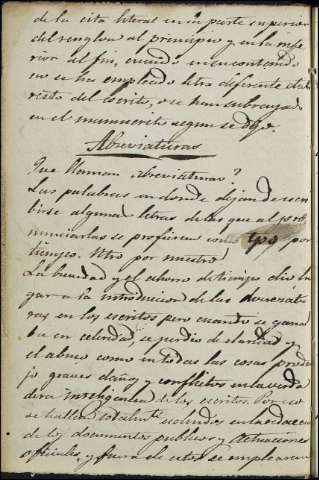 de la cita literal en la parte superior
del renglon al principio y en la infe
rior al fin, cuando en en contenido
no se ha empleado letra diferente del
resto del escrito, o se han subrayado
en el manuscrito segun se dijo.
Abreviaturas
Que llaman abreviaturas?
Las palabras en donde dejan de escri
birse algunas letras de las que al pro
nunciarlas se profieren como tpo por
tiempo. Ntro por nuestro
La brevedad y el ahorro de tiempo dio lu
gar a la introduccion de las abreviatu
ras en los escritos pero cuando se gana
ba en celeridad, se perdio de claridad y
el abuso como en todas las cosas produ
jo graves daños y conflictos en la verda
dera inteligencia de los escritos. Por eso
se hallan totalmte escluidas en la redaccion
de los documentos publicos y actuaciones
oficiales, y fuera de estos se emplearan